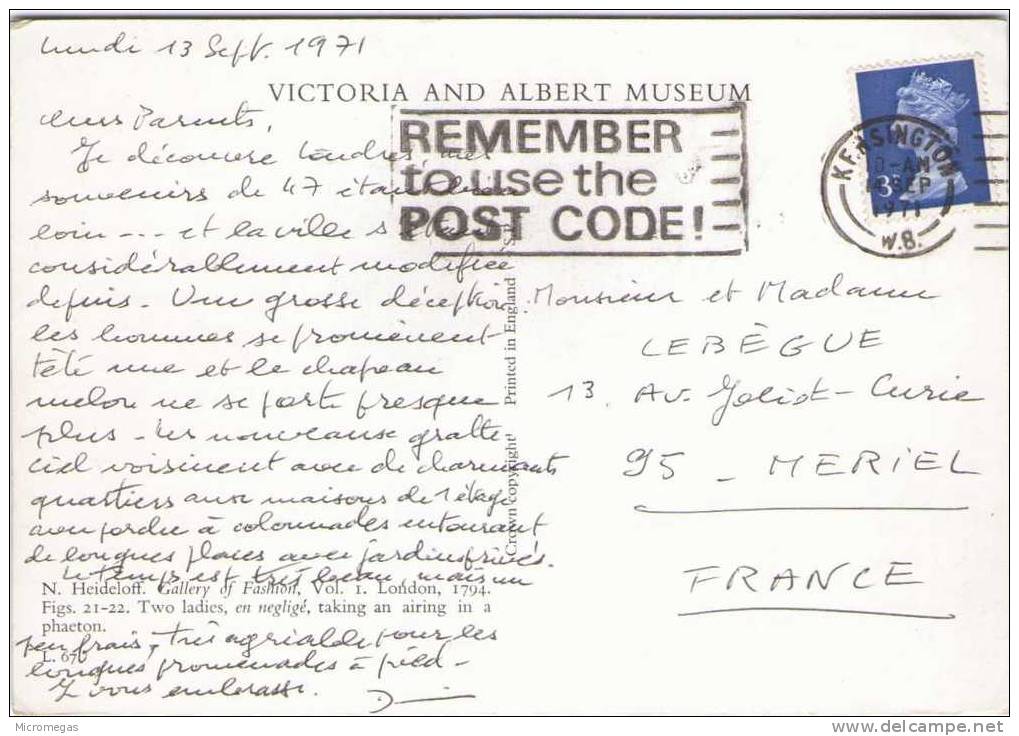 lundi 13 Sept. 1971
VICTORIA AND ALBERT MUSEUM
chers Parents,
Je découvre Londres, mes
souvenirs de 47 étant bien
loin --- et la ville s'étant
considérablement modifiée
depuis - Une grosse déception
les hommes se promènent
tête nue et le chapeau
melon ne se porte presque
plus - les nouveaux gratte
ciel voisinent avec de charmants
quartiers aux maisons de 1 étage
avec porche à colonnades entourant
de longues places avec jardins privés.
le temps est très beau mais un
peu frais, très agréable pour les
longues promenades à pied -
Je vous embrasse.
N. Heideloff. Gallery of Fashion, Vol. I. London, 1794.
Figs. 21-22. Two ladies, en negligé, taking an airing in a
phaeton.
L. 676
Crown copyright Printed in England
REMEMBER
to use the
POST CODE!
KENSINGTON
SEP
1971
W.8.
3P
Monsieur et Madame
LEBÈGUE
13, Av. Joliot-Curie
95 - MERIEL
FRANCE
Micromegas
delcampe.net